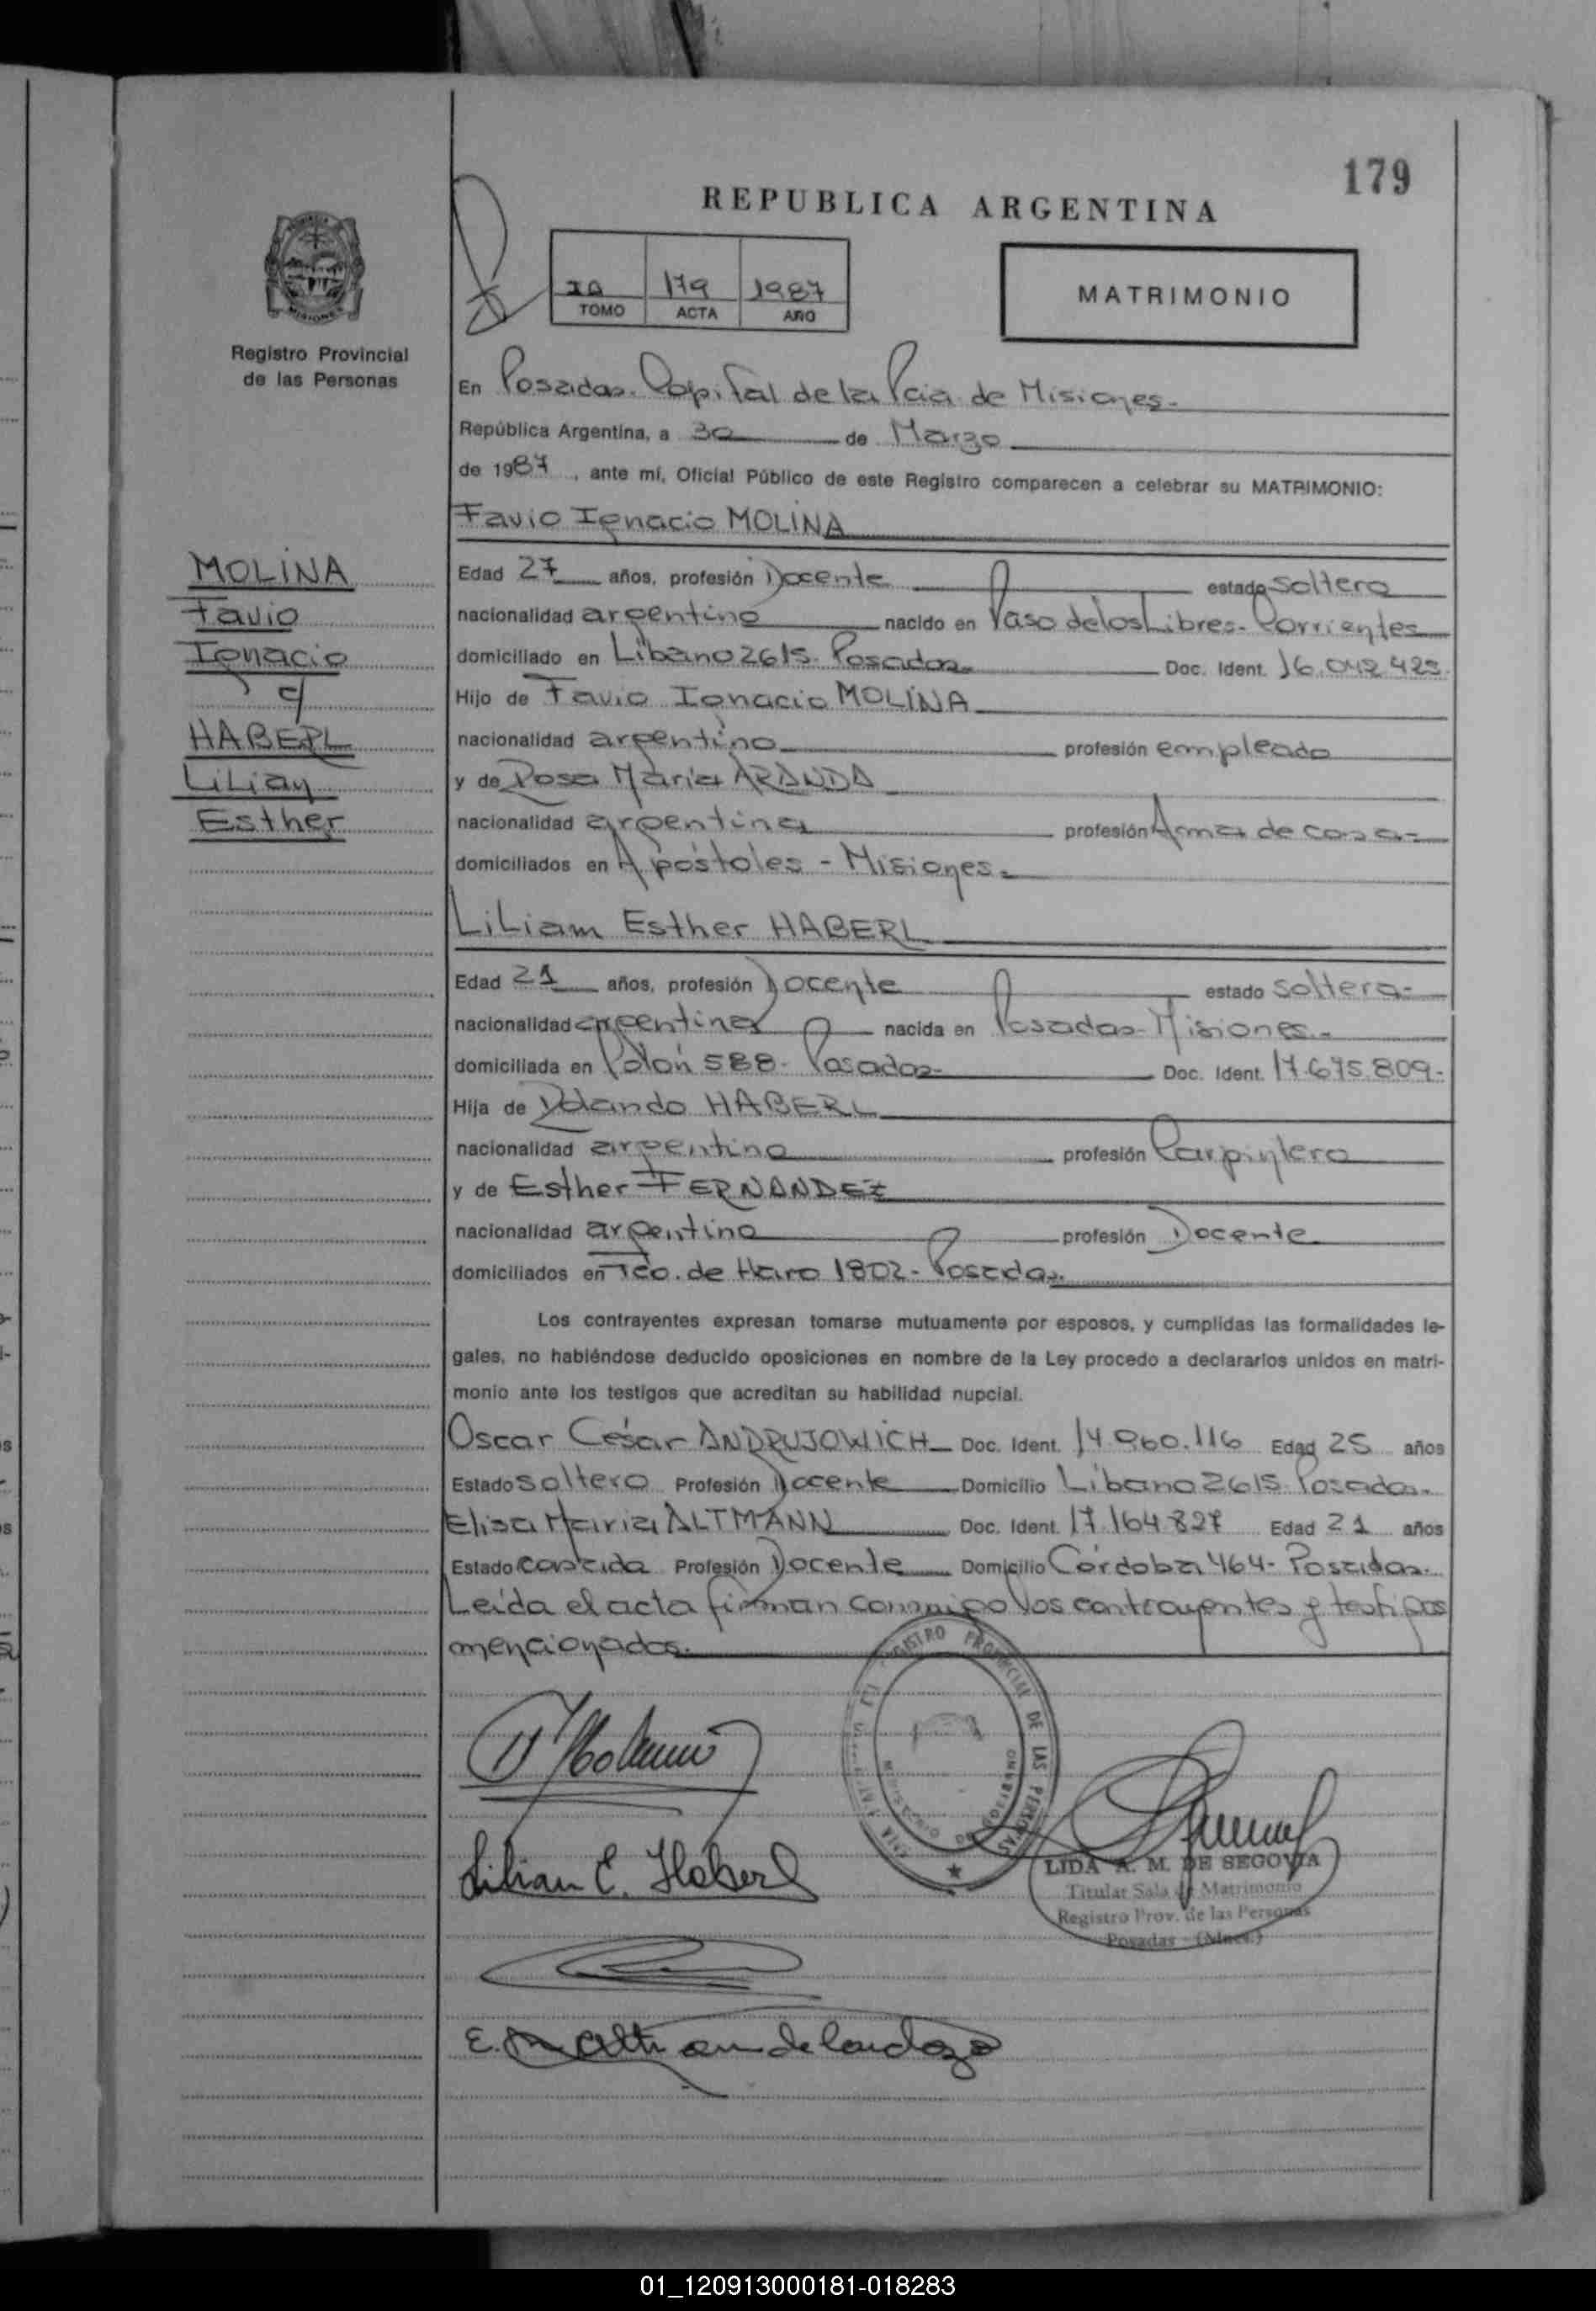 179
REPUBLICA ARGENTINA
179 1987
TOMO ACTA AÑO
MATRIMONIO
MISIONES
Registro Provincial
de las Personas
En Posadas. Capital de la Pcia de Misiones.
República Argentina, a 30 de Marzo
de 1987, ante mí, Oficial Público de este Registro comparecen a celebrar su MATRIMONIO:
Favio Ignacio MOLINA
MOLINA
Favio
Ignacio
HABERL
Lilian
Esther
Edad 27 años, profesión Docente estado soltero
nacionalidad argentino nacido en Paso de los Libres- Corrientes
domiciliado en Libano 2615. Posadas Doc. Ident. 16.042.425.
Hijo de Favio Ignacio MOLINA
nacionalidad argentino profesión empleado
y de Rosa Maria ARANDA
nacionalidad argentina profesión Ama de casa-
domiciliados en Apóstoles - Misiones.
Liliam Esther HABERL
Edad 21 años, profesión Docente estado soltera-
nacionalidad argentina nacida en Posadas- Misiones.-
domiciliada en Colón 588- Posadas- Doc. Ident. 17.675.809-
Hija de Rolando HABERL
nacionalidad argentino profesión Carpintero
y de Esther FERNANDEZ
nacionalidad argentina profesión Docente
domiciliados en Tco. de Haro 1802- Posadas.
Los contrayentes expresan tomarse mutuamente por esposos, y cumplidas las formalidades le-
gales, no habiéndose deducido oposiciones en nombre de la Ley procedo a declararlos unidos en matri-
monio ante los testigos que acreditan su habilidad nupcial.
Oscar César ANDRUJOWICH Doc. Ident. 14.960.116 Edad 25 años
Estado soltero Profesión Docente Domicilio Libano 2615. Posadas.
Elisa Maria ALTMANN Doc. Ident. 17.164.827 Edad 21 años
Estado casada Profesión Docente Domicilio Córdoba 464- Posadas.
Leida el acta firman conmigo los contrayentes y testigos
mencionados.
REGISTRO PROVINCIAL DE LAS PERSONAS
Lilian E. Haberl
LIDA A. M. DE SEGOVIA
Titular Sala de Matrimonio
Registro Prov. de las Personas
Posadas - (Mnes.)
01_120913000181-018283